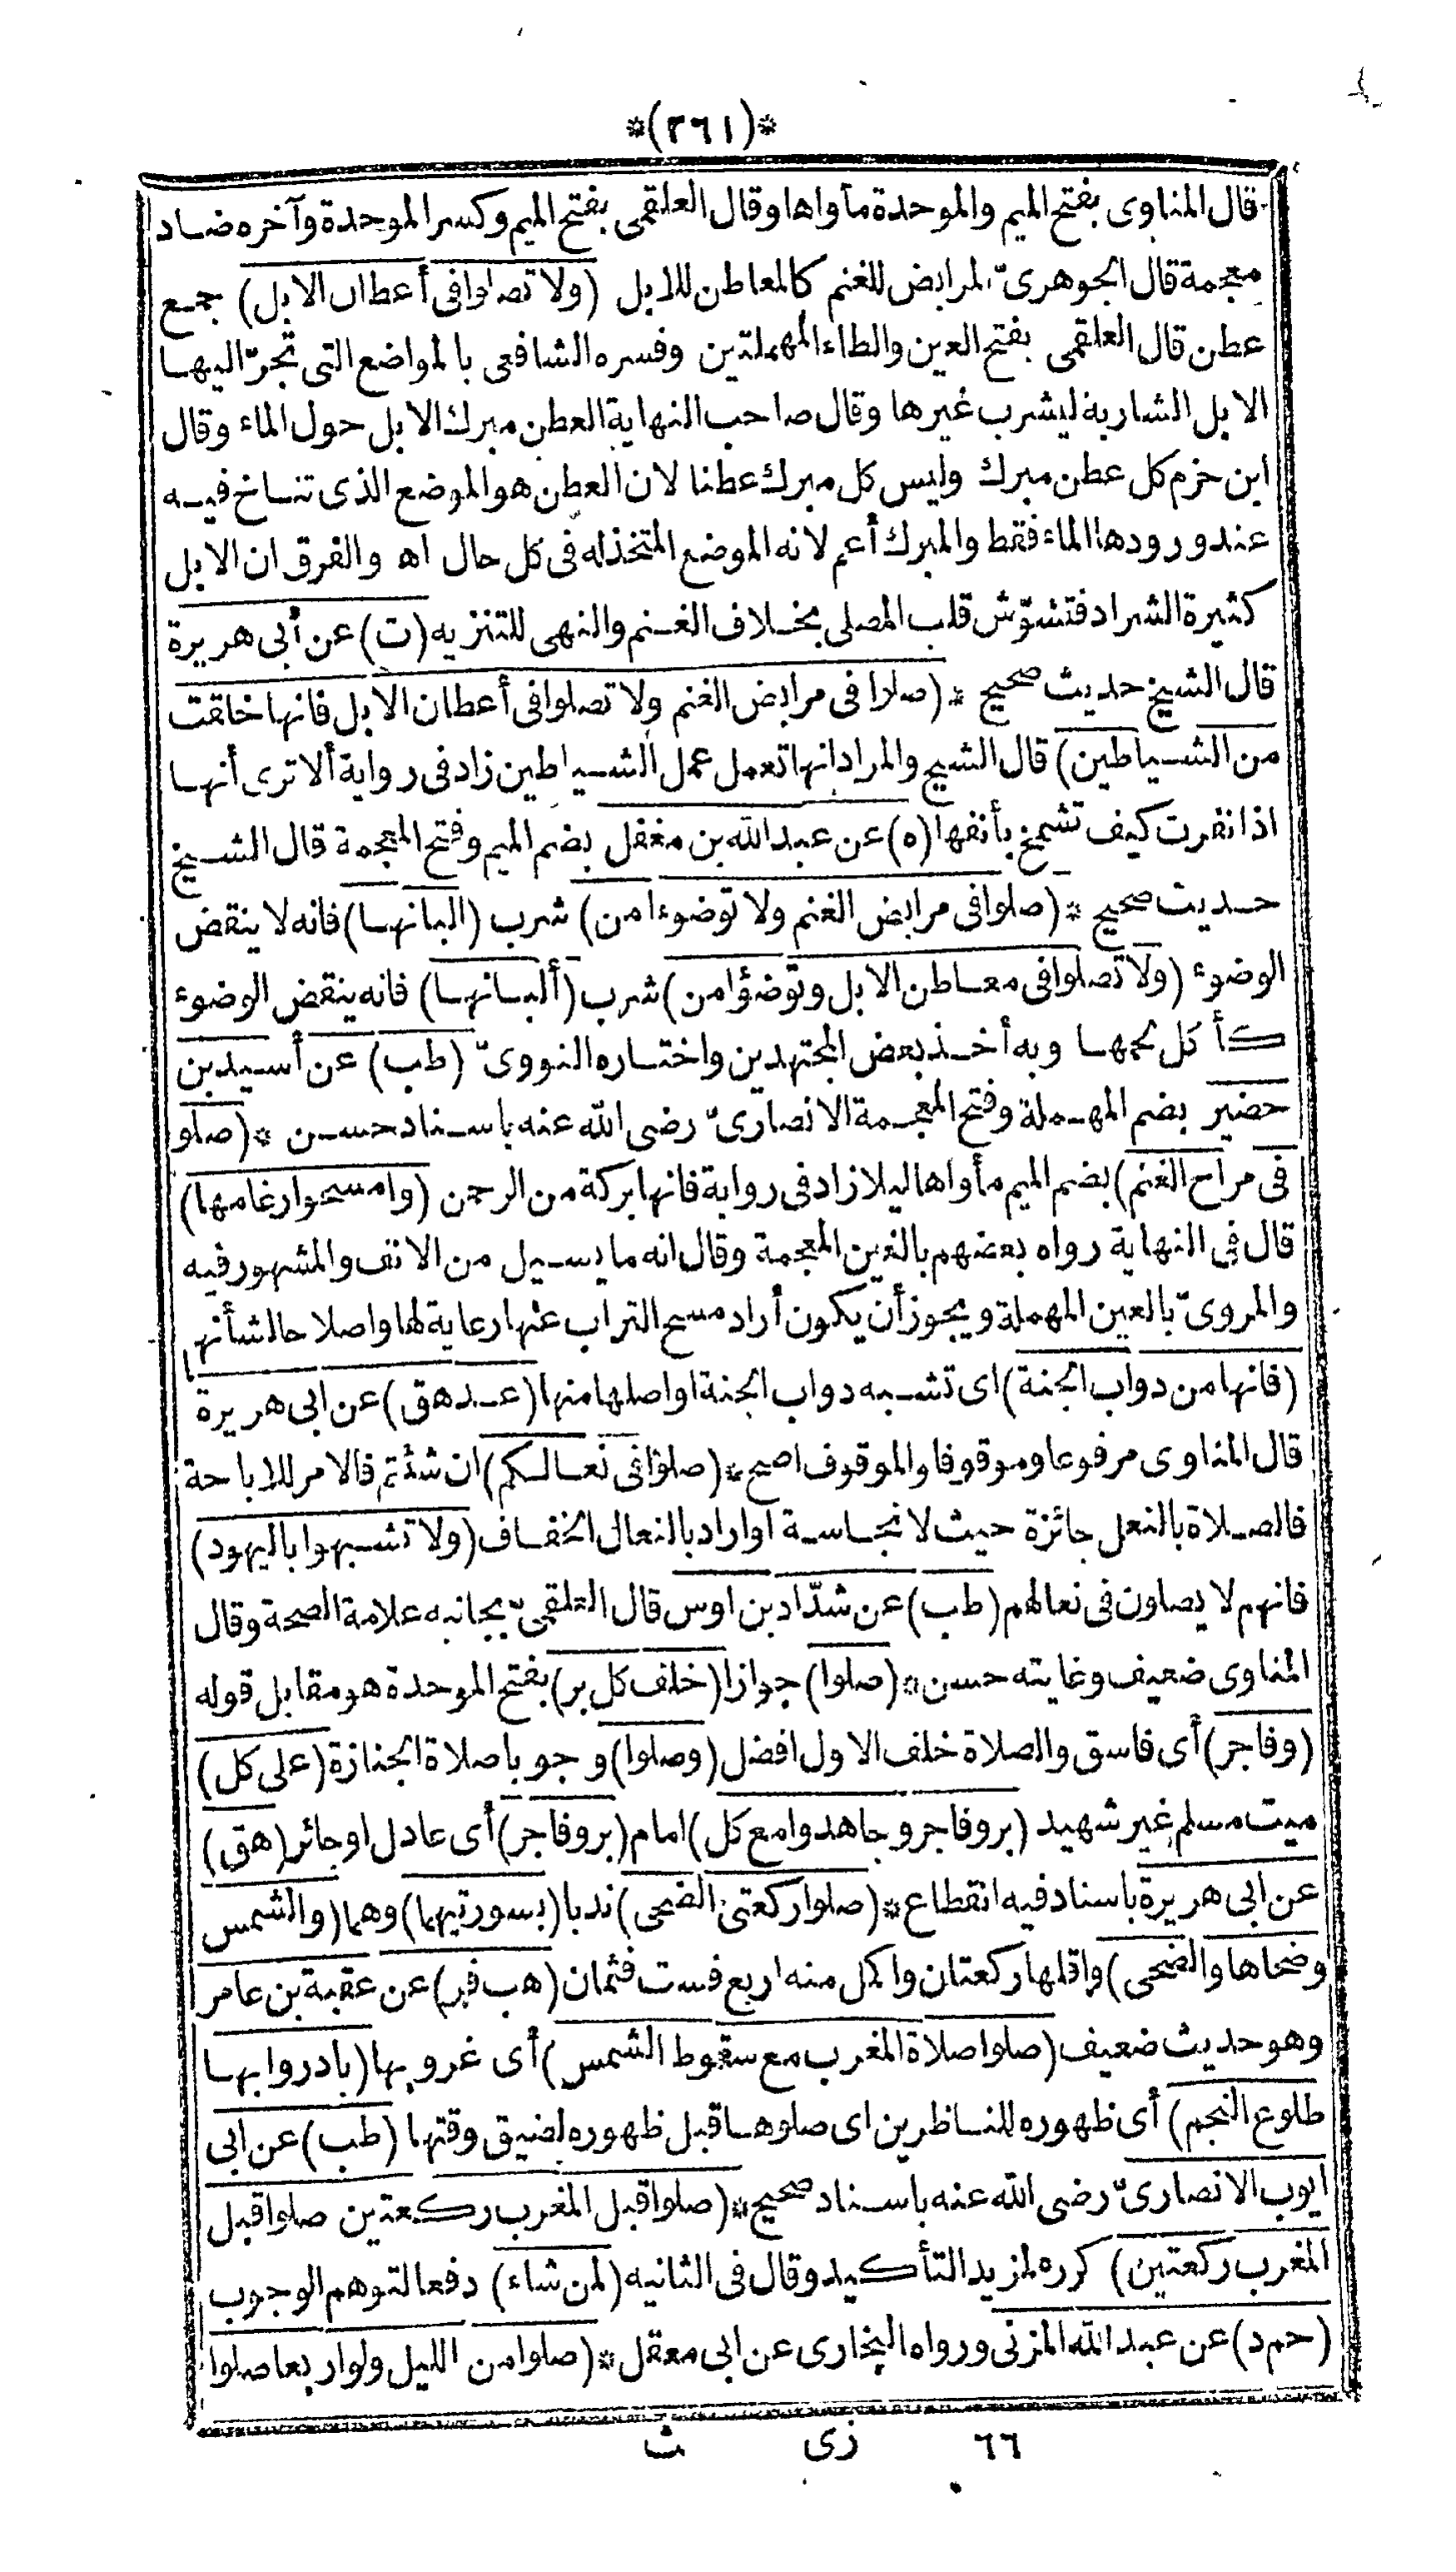 *(٣٦١)*
قال المناوى بفتح الميم والموحدة مأواها وقال العلقمى بفتح الميم وكسر الموحدة وآخره ضاد
معجمة قال الجوهرىّ المرابض للغنم كالمعاطن للابل (ولا تصلوا فى أعطان الابل) جمع
عطن قال العلقمى بفتح العين والطاء المهملتين وفسره الشافعى بالمواضع التى تجرّ اليها
الابل الشاربة ليشرب غيرها وقال صاحب النهاية العطن مبرك الابل حول الماء وقال
ابن حزم كل عطن مبرك وليس كل مبرك عطنا لان العطن هو الموضع الذى تناخ فيه
عند ورودها الماء فقط والمبرك أعم لانه الموضع المتخذ له فى كل حال اه والفرق ان الابل
كثيرة الشراد فتشوّش قلب المصلى بخلاف الغنم والنهى للتنزيه (ت) عن أبى هريرة
قال الشيخ حديث صحيح * (صلوا فى مرابض الغنم ولا تصلوا فى أعطان الابل فانها خلقت
من الشياطين) قال الشيخ والمراد انها تعمل عمل الشياطين زاد فى رواية ألا ترى أنها
اذا نفرت كيف تشمخ بأنفها (ه) عن عبد الله بن مغفل بضم الميم وفتح المعجمة قال الشيخ
حديث صحيح * (صلوا فى مرابض الغنم ولا توضوءا من) شرب (البانها) فانه لا ينقض
الوضوء (ولا تصلوا فى معاطن الابل وتوضؤا من) شرب (ألبانها) فانه ينقض الوضوء
كأكل لحمها وبه أخذ بعض المجتهدين واختاره النووىّ (طب) عن أسيد بن
حضير بضم المهملة وفتح المعجمة الانصارىّ رضى الله عنه باسناد حسن * (صلوا
فى مراح الغنم) بضم الميم مأواها ليلا زاد فى رواية فانها بركة من الرحمن (وامسحوا رغامها)
قال فى النهاية رواه بعضهم بالغين المعجمة وقال انه ما يسيل من الانف والمشهور فيه
والمروىّ بالعين المهملة ويجوز أن يكون أراد مسح التراب عنها رعاية لها واصلاحا لشأنها
(فانها من دواب الجنة) اى تشبه دواب الجنة او اصلها منها (عد هق) عن ابى هريرة
قال المناوى مرفوعا وموقوفا والموقوف اصح * (صلوا فى نعالكم) ان شئتم فالامر للاباحة
فالصلاة بالنعل جائزة حيث لا نجاسة او اراد بالنعال الخفاف (ولا تشبهوا باليهود)
فانهم لا يصلون فى نعالهم (طب) عن شدّاد بن اوس قال العلقمىّ بجانبه علامة الصحة وقال
المناوى ضعيف وغايته حسن * (صلوا) جوازا (خلف كل بر) بفتح الموحدة هو مقابل قوله
(وفاجر) أى فاسق والصلاة خلف الاول افضل (وصلوا) وجوبا صلاة الجنازة (على كل)
ميت مسلم غير شهيد (بر وفاجر وجاهدوا مع كل) امام (بر وفاجر) أى عادل او جائر (هق)
عن ابى هريرة باسناد فيه انقطاع * (صلوا ركعتى الضحى) ندبا (بسورتيهما) وهما (والشمس
وضحاها والضحى) واقلها ركعتان واكمل منه اربع فست فثمان (هب فر) عن عقبة بن عامر
وهو حديث ضعيف (صلوا صلاة المغرب مع سقوط الشمس) أى غروبها (بادروا بها
طلوع النجم) أى ظهوره للناظرين اى صلوها قبل ظهوره لضيق وقتها (طب) عن ابى
ايوب الانصارىّ رضى الله عنه باسناد صحيح * (صلوا قبل المغرب ركعتين صلوا قبل
المغرب ركعتين) كرره لمزيد التأكيد وقال فى الثانيه (لمن شاء) دفعا لتوهم الوجوب
(حم د) عن عبد الله المزنى ورواه البخارى عن ابى معقل * (صلوا من الليل ولو اربعا صلوا
٦٦ زى ث